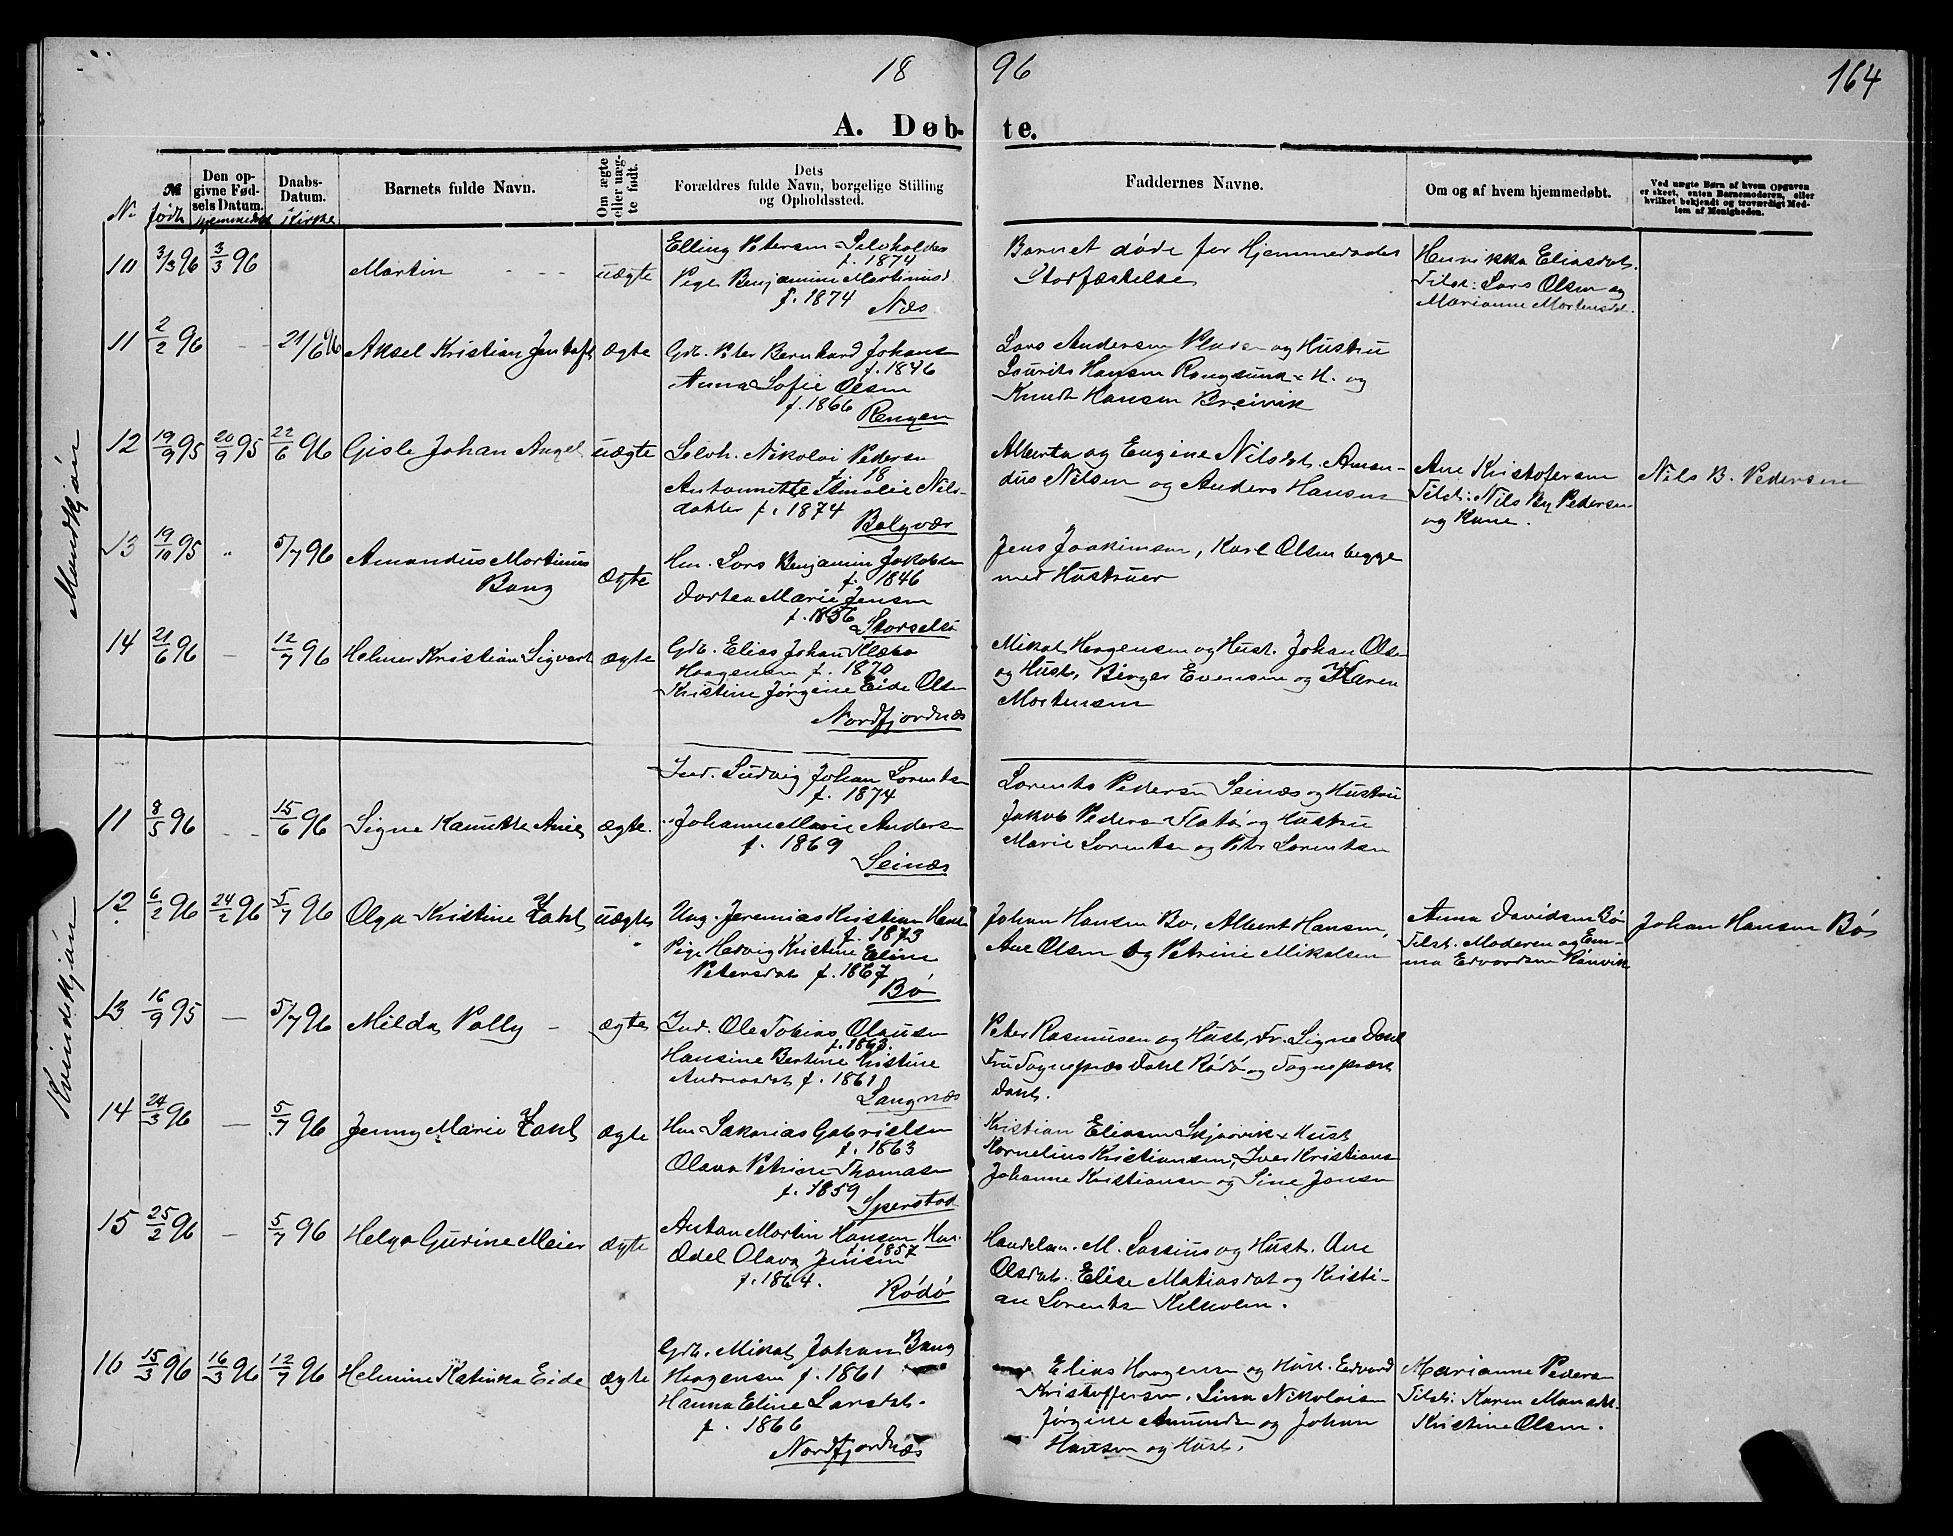 18 96
164
A. Døbte.
No
№ født
Den opgivne Fødsels Datum. hjemmedøbt
Daabs-Datum. i Kirke
Barnets fulde Navn.
Om ægte eller uægte født.
Dets Forældres fulde Navn, borgelige Stilling og Opholdssted.
Faddernes Navne.
Om og af hvem hjemmedøbt.
Ved uægte Børn af hvem Opgaven er skeet, enten Barnemoderen, eller hvilket bekjendt og troværdigt Medlem af Menigheden.
Mandkjøn
10 3/3 96 3/3 96 Martin - - - uægte
Elling Petersen Selvholden
f. 1874
Pige Benjamine Martinusd.
f. 1874
Næs
Barnet døde før Hjemmedaabs
Stadfæstelse
Henrikka Eliasdat.
Tilst: Lars Olsen og
Marianne Mortensdt.
11 2/2 96 21/6 96 Aksel Kristian Jentoft ægte
Gdb. Peter Bernhard Johans
f. 1846
Anna Sofie Olsen
f. 1866
Rengen
Lars Andersen og Hustru
Laurits Hansen Rangsund + H. og
Knudt Hansen Breivik
12 19/9 95 20/9 95 22/6 96 Gisle Johan Angel uægte
Selvh. Nikolai Pedersen
f. 18
Antonette Amalie Nils-
datter f. 1874
Bolgvær
Alberta og Eugine Nilsdt. Aman-
dus Nilsen og Anders Hansen
Ane Kristofersen
Tilst: Nils By Pedersen
og Kone.
Nils B. Pedersen
13 19/10 95 " 5/7 96 Amandus Martinus
Bang
ægte
Hm. Lars Benjamin Jakobsen
f. 1846
Dortea Marie Jensen
f. 1856
Storselsø
Jens Joakimsen, Karl Olsen begge
med Hustruer
14 21/6 96 - 12/7 96 Helmer Kristian Sigvart ægte
Gdb. Elias Johan Klæbo
Haagensen f. 1870
Kristine Jørgine Eide Olsen
Nordfjordnæs
Mikal Haagensen og Hust. Johan Olsen
og Hust, Birger Evensen og Karen
Mortensen
Kvindekjøn
11 8/5 96 - - 15/6 96 Signe Kanutte Anie ægte.
Ind. Ludvig Johan Lorentsen
f. 1874
Johanne Marie Anders
f. 1869
Seinæs
Lorents Pedersen Seinæs og Hustru
Jakob Pedersen Flatø og Hustru
Marie Lorentsen og Peter Lorentsen
12 6/2 96 24/2 96 5/7 96 Olga Kristine Zahl uægte
Ung. Jeremias Kristian Hans
f. 1873
Pige Hedvig Kristine Eline
Petersdat f. 1867
Bø
Johan Hansen Bø, Albert Hansen,
Ane Olsen og Petrine Mikalsen
Anna Davidsen Bø
Tilst. Moderen og Em-
ma Edvardsen Rønvik
Johan Hansen Bø
13 16/9 95 - 5/7 96 Milda Polly - ægte
Ind. Ole Tobias Olausen
f. 1863.
Hansine Bertine Kristine
Andreasdt f. 1861
Langnæs
Peter Rasmusen og Hust, Fr. Signe Dahl
Fru Sognepræs Dahl Rødø og Sognepræst
Dahl.
14 24/3 96 - 5/7 96 Jenny Marie Zahl ægte
Hm Sakarias Gabrielsen
f. 1863
Olava Petrine Thomasen
f. 1859
Sperstad
Kristian Eliasen Skjærvik + Hust
Kornelius Kristiansen, Iver Kristians
Johanne Kristiansen og Sine Jonsen
15 25/2 96 - 5/7 96 Helga Gurine Meier ægte
Anton Martin Hansen Hm.
f. 1857
Ædel Olava Jensen
f. 1864.
Rødø
Handelsm. M. Lassius og Hust. Ane
Olsdat. Elise Matiasdat og Kristi-
an Lorentsen Kilholm.
16 15/3 96 16/3 96 12/7 96 Helmine Katinka Eide ægte
Gdb. Mikal Johan Bang
Haagensen f. 1861
Hanna Eline Larsdt.
f. 1866
Nordfjordnæs
Elias Haagensen og Hust. Edvard
Kristoffersen, Lina Nikolaisen
Jørgine Amundsen og Johan
Hansen og Hust.
Marianne Pedersen
Tilst: Karen Mansdt.
Kristine Olsen.